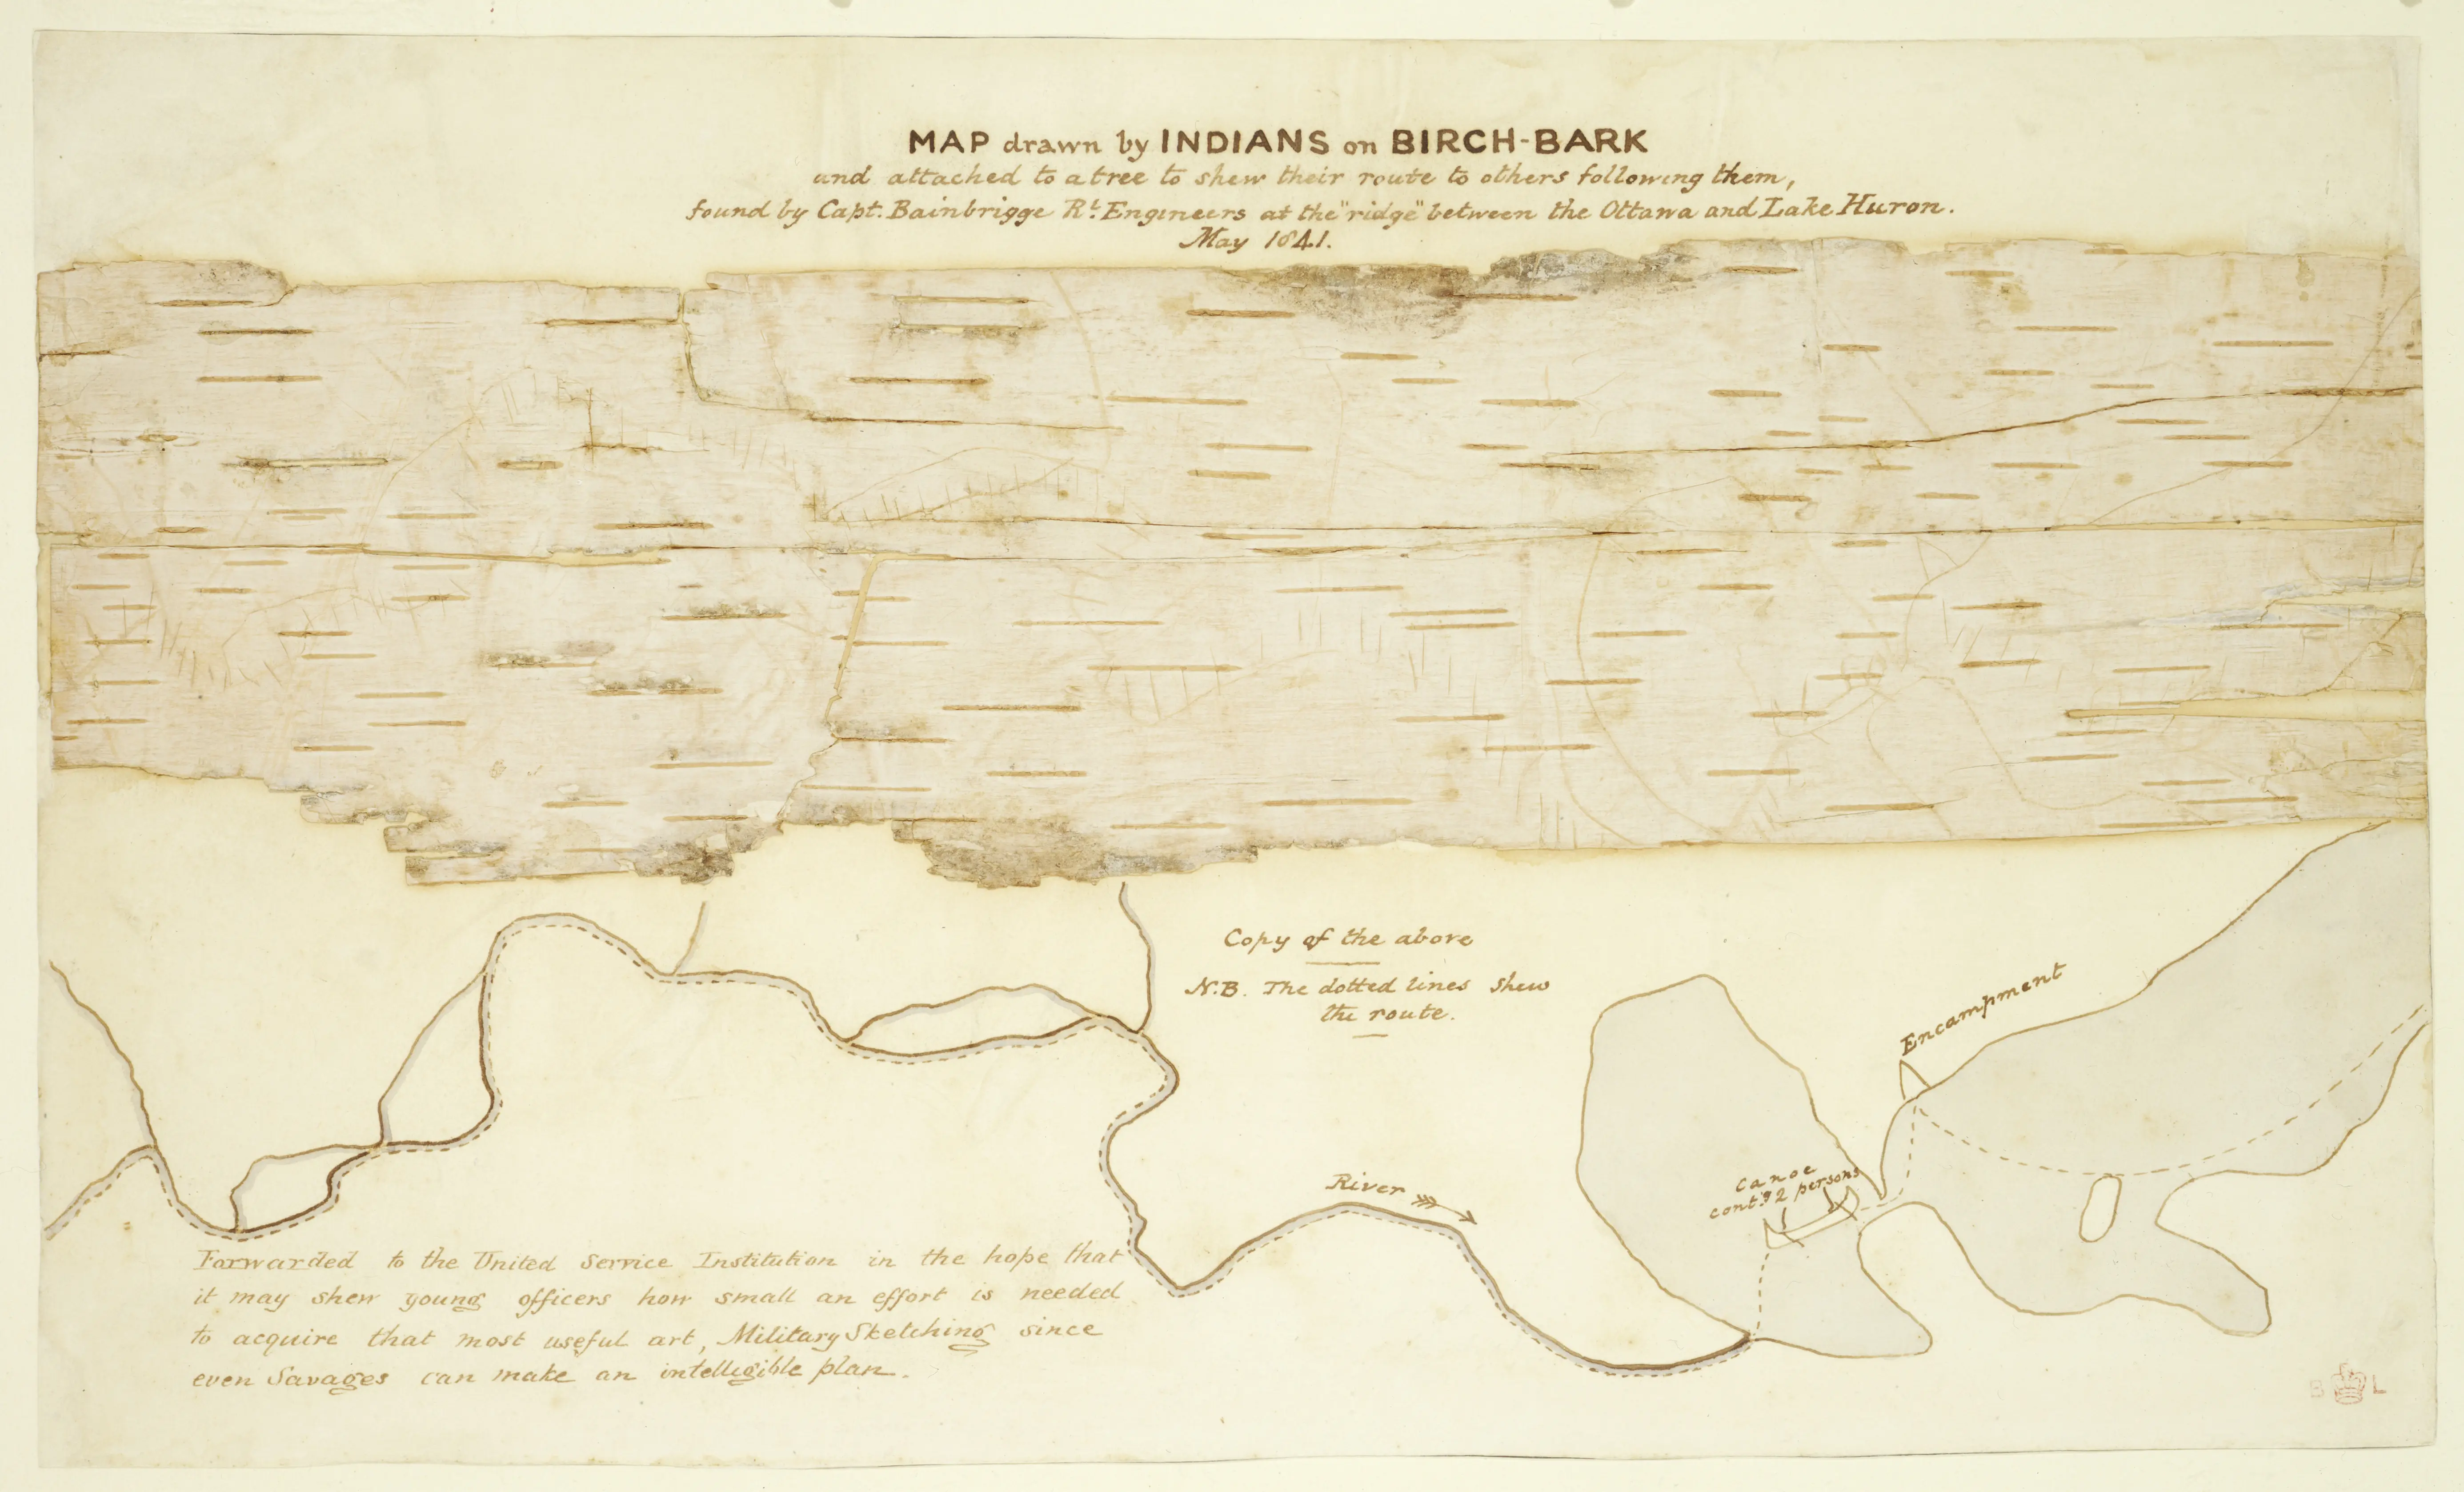 MAP drawn by INDIANS on BIRCH-BARK
and attached to a tree to shew their route to others following them,
found by Capt. Bainbrigge Rl. Engineers at the "ridge" between the Ottawa and Lake Huron.
May 1841.
Copy of the above
N.B. The dotted lines shew
the route.
Encampment
Canoe
contg 2 persons
River
Forwarded to the United Service Institution in the hope that
it may shew young officers how small an effort is needed
to acquire that most useful art, Military Sketching since
even Savages can make an intelligible plan.
B L